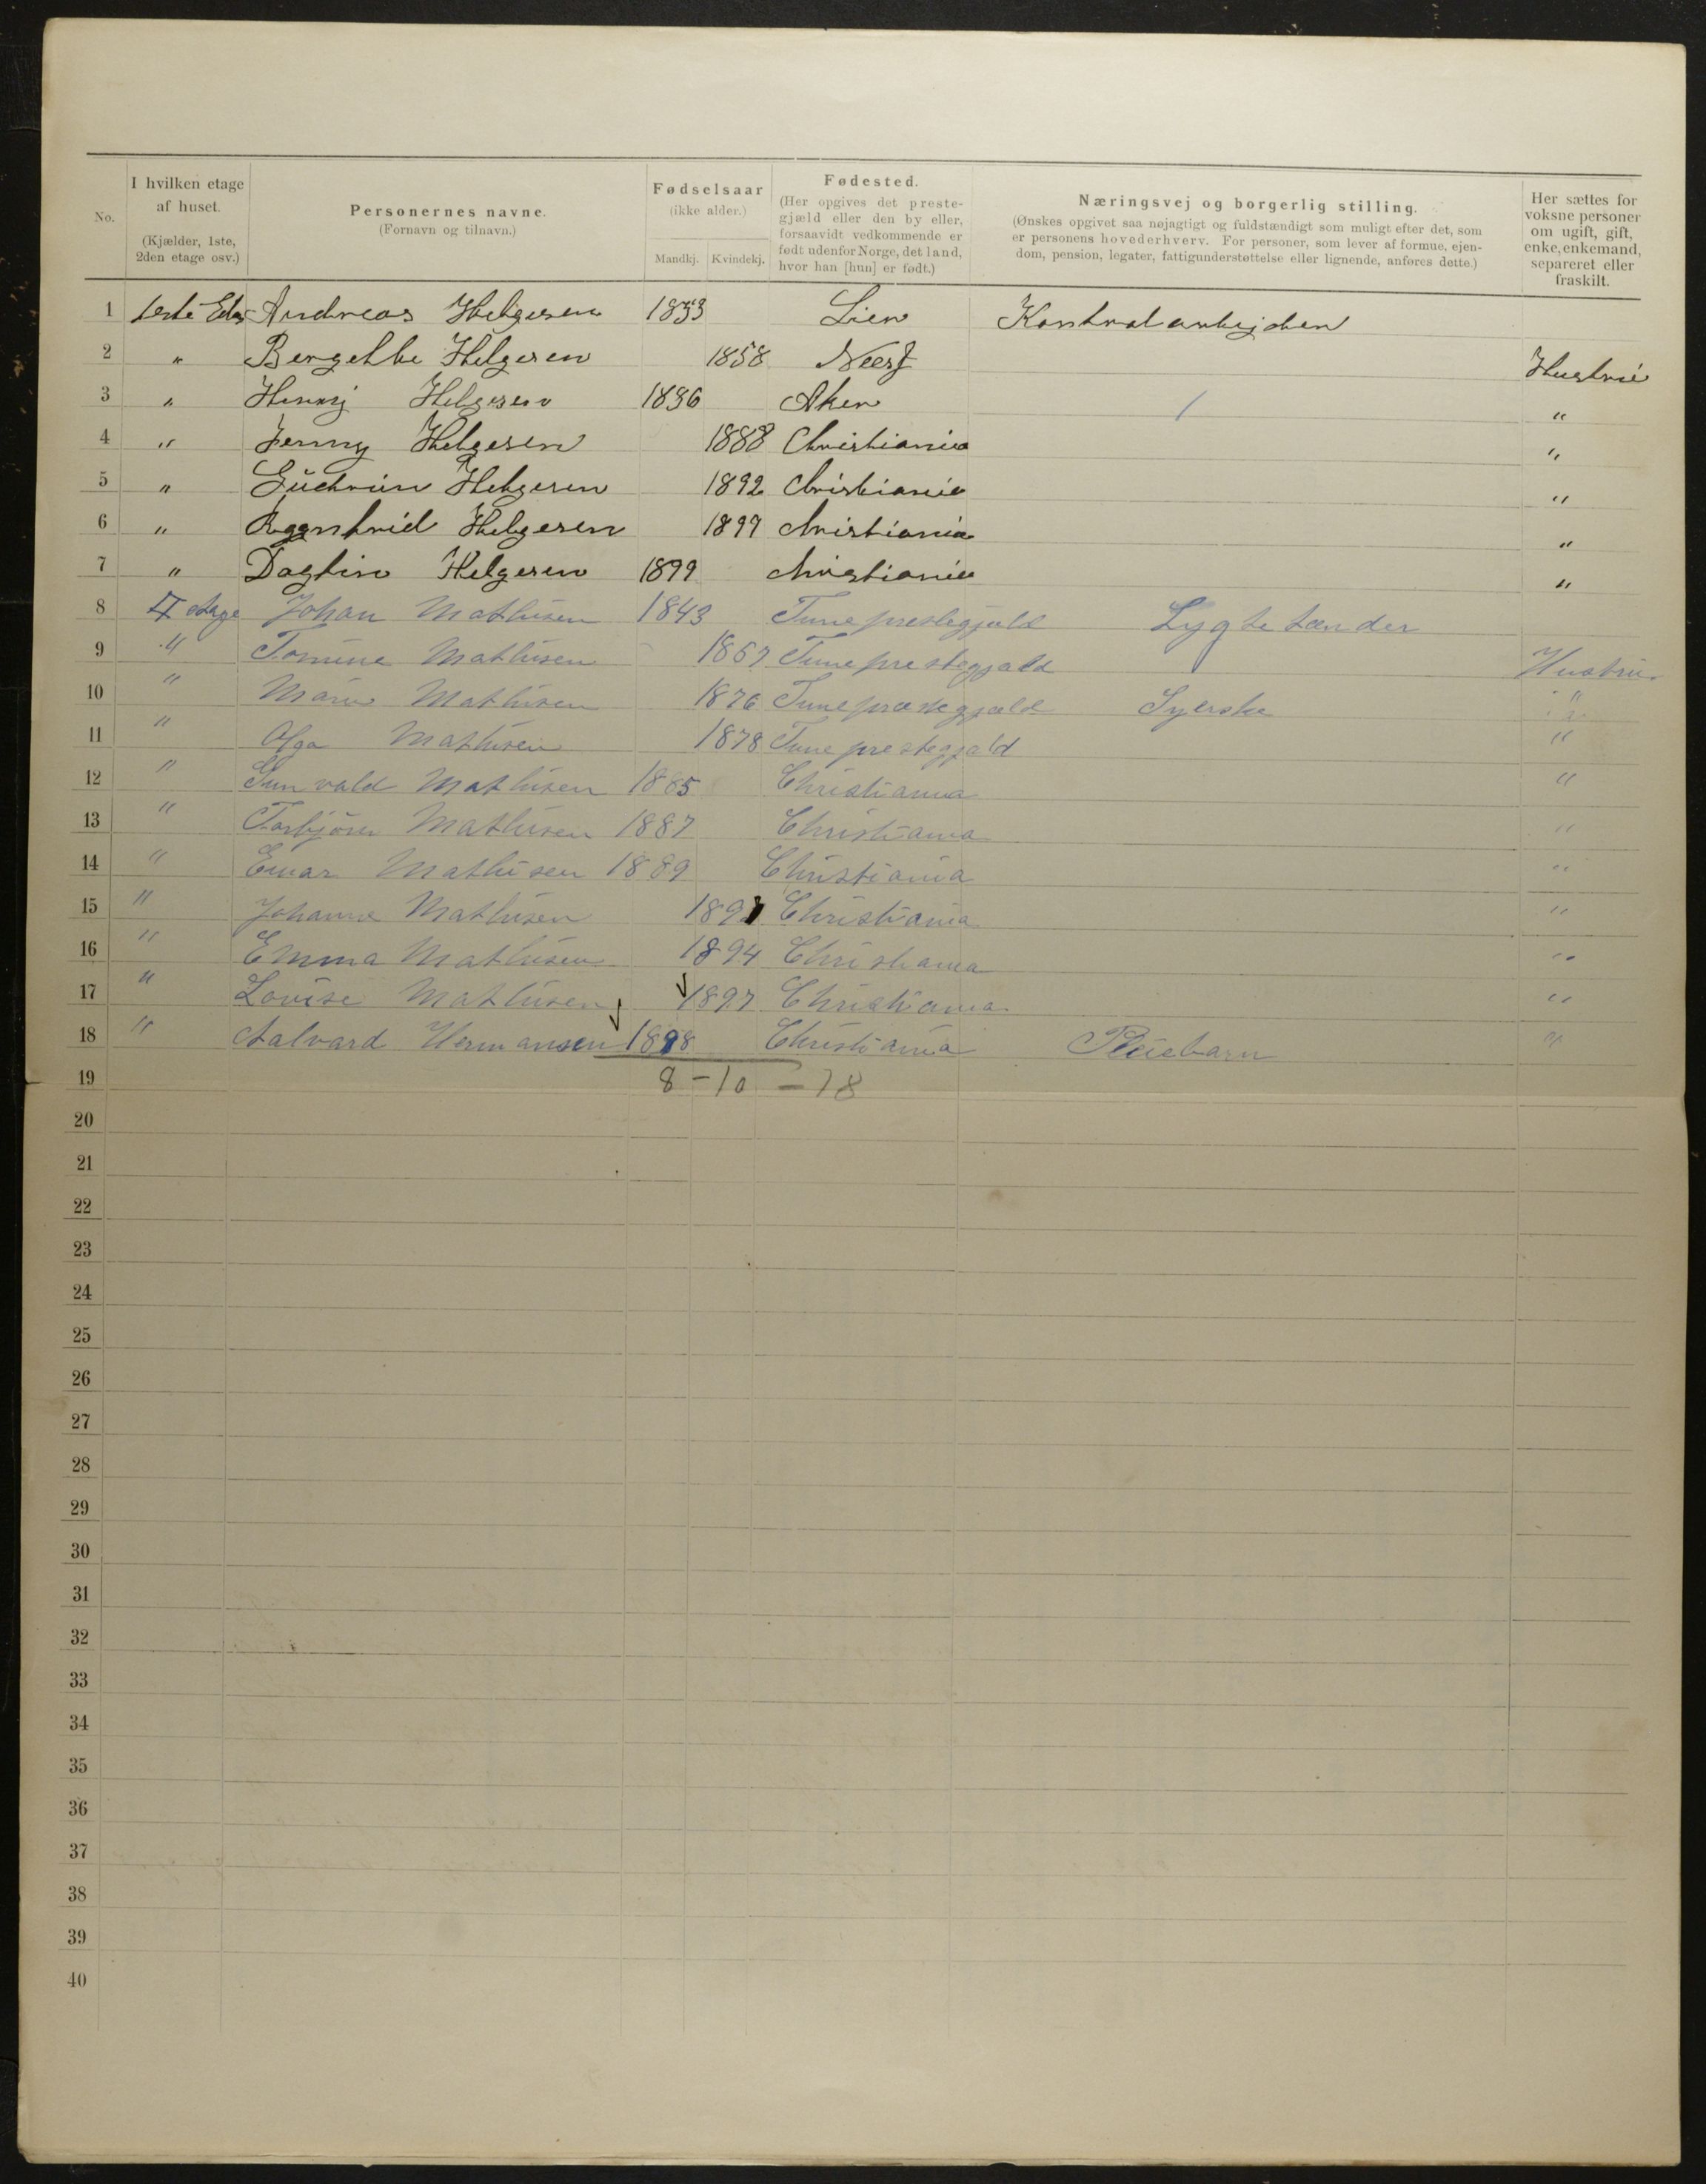 No. I hvilken etage af huset. (Kjælder, 1ste, 2den etage osv.) Personernes navne. (Fornavn og tilnavn.) Fødselsaar (ikke alder.) Mandkj. Kvindekj. Fødested. (Her opgives det prestegjæld eller den by eller, forsaavidt vedkommende er født udenfor Norge, det land, hvor han [hun] er født.) Næringsvej og borgerlig stilling. (Ønskes opgivet saa nøjagtigt og fuldstændigt som muligt efter det, som er personens hovederhverv. For personer, som lever af formue, ejendom, pension, legater, fattigunderstøttelse eller lignende, anføres dette.) Her sættes for voksne personer om ugift, gift, enke, enkemand, separeret eller fraskilt.
1 Andreas Helgesen Lier
2 " Helgesen 1858 Hustrui
3 " Helgesen Aker "
4 " Jenny Helgesen 1888 Christiania "
5 " Gudrun Helgesen 1892 Christiania "
6 " Helgesen 1897 Christiania "
7 " Dagfin Helgesen 1899 Christiania "
8 4 etage Johan Mathisen 1843 Tune prestegjæld Lygtetænder
9 " Tomine Mathisen Tune prestegjæld Hustru.
10 " Marie Mathisen 1876 Tune prestegjæld Syerske "
11 " Olga Mathisen 1878 Tune prestegjæld "
12 " Mathisen 1885 Christiania "
13 " Torbjörn Mathisen 1887 Christiania "
14 " Einar Mathisen 1889 Christiania "
15 " Johanne Mathisen Christiania "
16 " Emma Mathisen 1894 Christiania "
17 " Lovise Mathisen 1897 Christiania "
18 " Halvard Hermansen 1898 Christiania Pleiebarn "
19 8 - 10 - 18
20
21
22
23
24
25
26
27
28
29
30
31
32
33
34
35
36
37
38
39
40